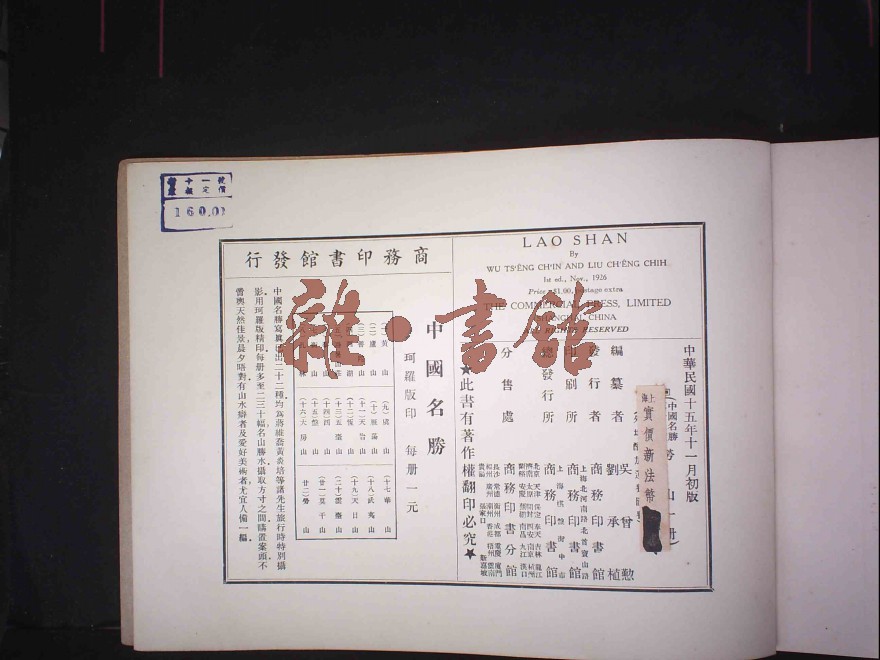 LAO SHAN
By
WU TS'ÊNG CH'IN AND LIU CH'ÊNG CHIH
1st ed., Nov., 1926
Price $1.00, postage extra
THE COMMERCIAL PRESS, LIMITED
SHANGHAI, CHINA
ALL RIGHTS RESERVED
中華民國十五年十一月初版
上海
實價新法幣
編纂者 吳曾懃
劉承植
發行者 商務印書館
上海北河南路北首寶山路
印刷所 商務印書館
上海棋盤街中市
總發行所 商務印書館
分售處 商務印書分館
★此書有著作權翻印必究★
商務印書館發行
中國名勝
珂羅版印 每册一元
(一)黃山
(二)廬山
(九)盤山
(十)雁蕩山
(十一)天台山
(十二)恆山
(十三)五臺山
(十六)大房山
(十七)華山
(十八)武夷山
(十九)天目山
(二十)雲臺山
(廿一)莫干山
(廿二)勞山
中國名勝寫眞已出二十二種均爲蔣維喬黃炎培等諸先生旅行時特別攝
影用珂羅版精印每册多至二三十幅名山勝水攝取方寸之間疇置案頭不
啻與天然佳景晨夕晤對有山水癖者及愛好美術者尤宜人備一編
160.00
雜·書館